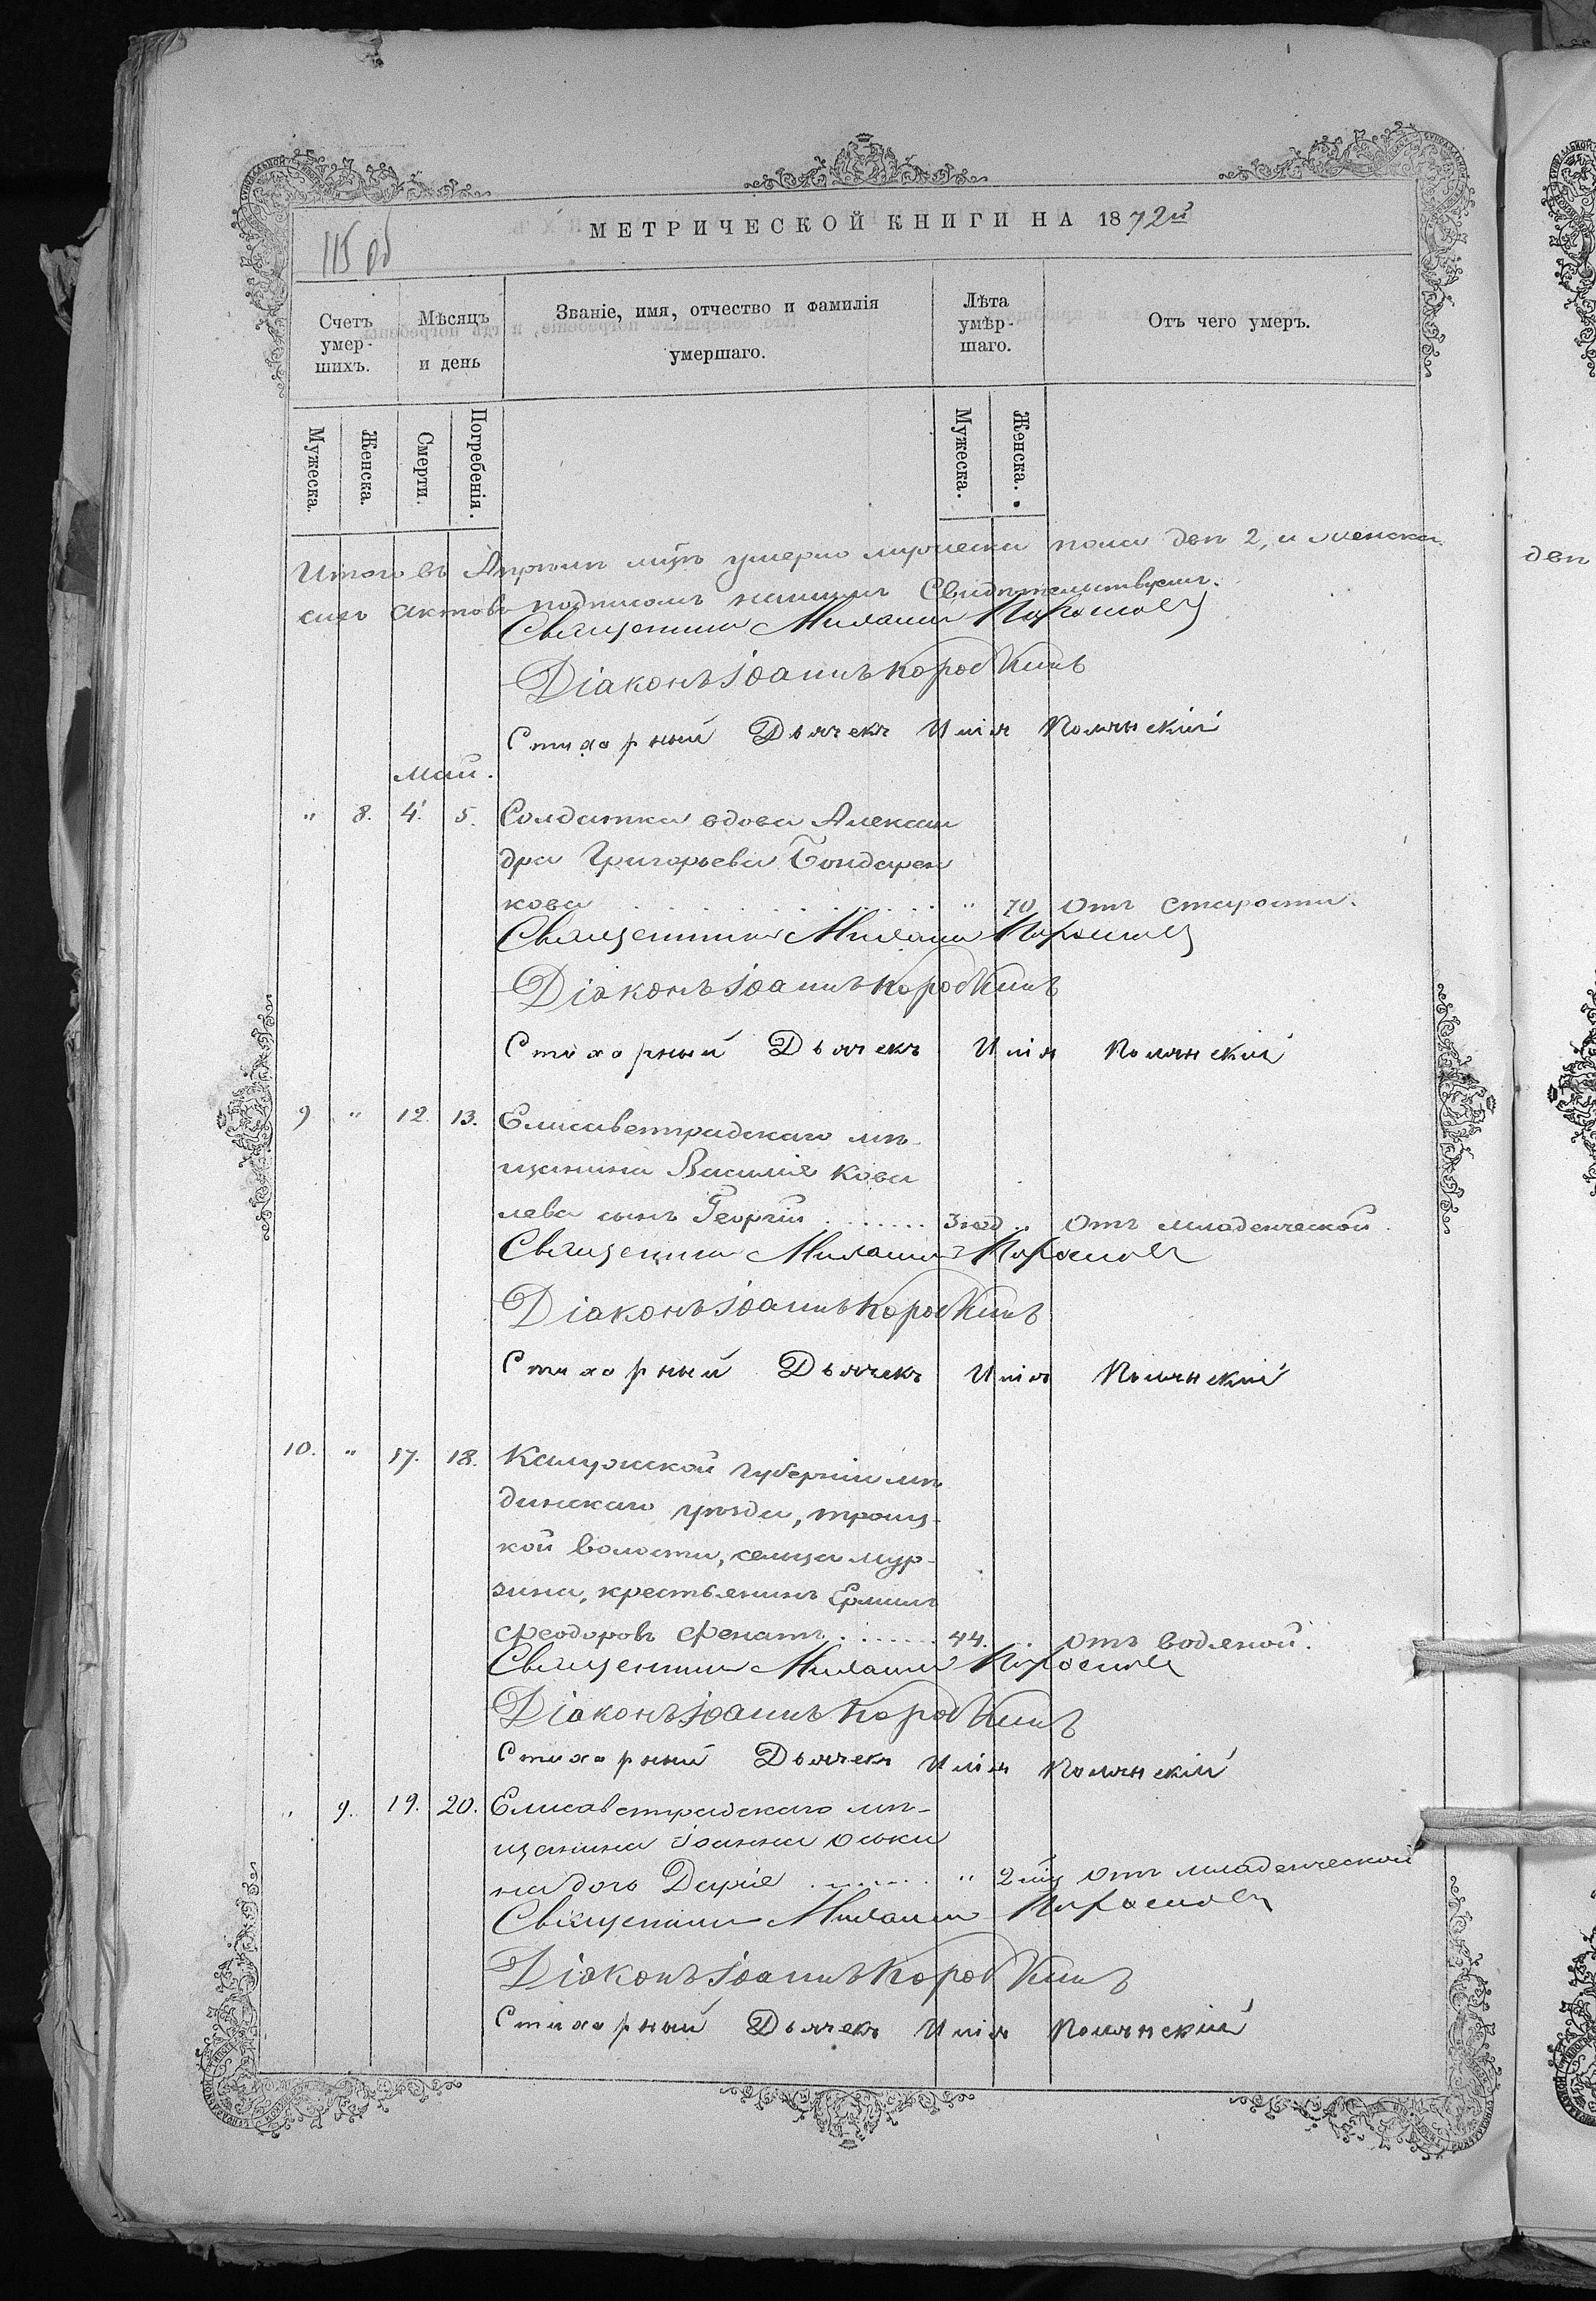 115 об
МЕТРИЧЕСКОЙ КНИГИ НА 1872й
Счетъ умер-шихъ.
Мѣсяцъ и день
Званіе, имя, отчество и фамилія умершаго.
Лѣта умѣр-шаго.
Отъ чего умеръ.
Мужеска.
Женска.
Смерти.
Погребенія.
Мужеска.
Женска.
Итого въ Апрѣлѣ мцѣ умерло мужеска пола два 2, и женска
сихъ актовъ подписомъ нашимъ Свидѣтельствуемъ.
Священникъ
Діаконъ Іоаннъ Коробкинъ
Стихарный Дьячекъ Илія Полянскій
Май.
" 8. 4. 5. Солдатка вдова Алексан
дра Григорьева Бондарен
кова " 70 Отъ старости.
Священникъ
Діаконъ Іоаннъ Коробкинъ
Стихарный Дьячекъ Илія Полянскій
9 " 12. 13. Елисаветградскаго мѣ-
щанина Василія Кова
лева сынъ Георгій 3 год " Отъ младенческой.
Священникъ
Діаконъ Іоаннъ Коробкинъ
Стихарный Дьячекъ Илія Полянскій
10. " 17. 18. Калужской губерніи мѣ
динскаго уѣзда, троиц-
кой волости, сельца мур-
зина, крестьянинъ Ермилъ
Феодоровъ 44. Отъ водяной.
Священникъ
Діаконъ Іоаннъ Коробкинъ
Стихарный Дьячекъ Илія Полянскій
" 9. 19. 20. Елисаветградскаго мѣ-
щанина Іоанна Оськи
на дочь Дарія " 2 мц Отъ младенческой
Священникъ
Діаконъ Іоаннъ Коробкинъ
Стихарный Дьячекъ Илія Полянскій